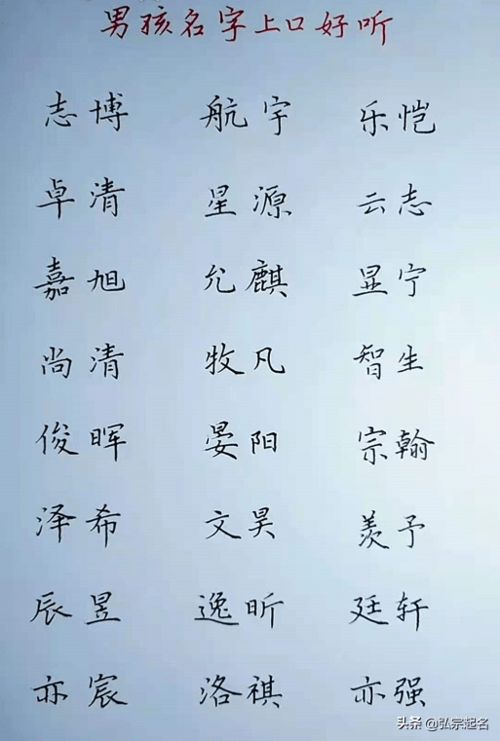 男孩名字上口好听
志博 航宇 乐恺
卓清 星源 云志
嘉旭 允麒 显宁
尚清 牧凡 智生
俊晖 晏阳 宗翰
泽希 文昊 羡予
辰昱 逸昕 廷轩
亦宸 洛祺 亦强
头条 @弘宗起名